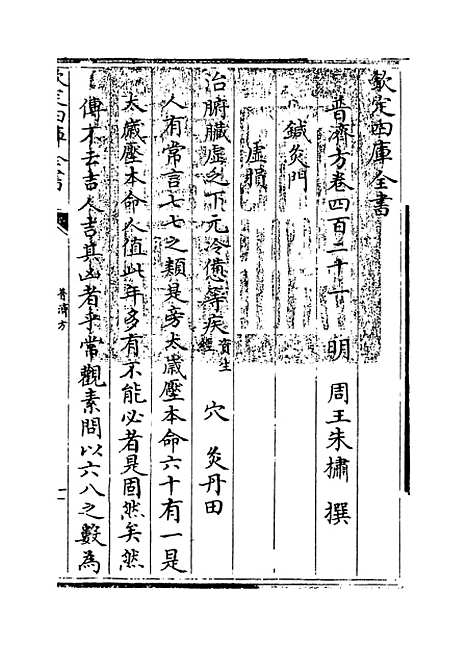 欽定四庫全書
普濟方卷四百二十一 明 周王朱橚 撰
鍼灸門
虛損
治腑臟虛乏下元冷憊等疾資生經 穴 灸丹田
人有常言七七之類是旁太歲壓本命六十有一是
太歲壓本命人值此年多有不能必者是固然矣然
傳不云吉人吉其凶者乎常觀素問以六八之數為
欽定四庫全書
普濟方